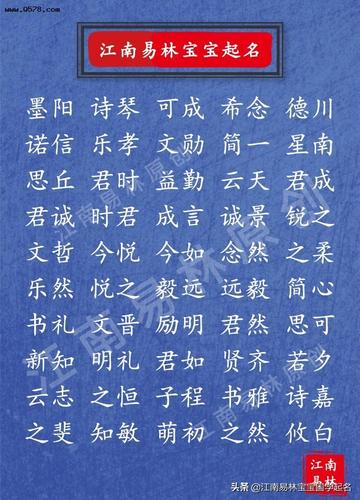 www.Q578.com
江南易林宝宝起名
墨阳 诗琴 可成 希念 德川
诺信 乐孝 文勋 简一 星南
思丘 君时 益勤 云天 君成
君诚 时君 成言 诚景 锐之
文哲 今悦 今如 念然 之柔
乐然 悦之 毅远 远毅 简心
书礼 文晋 励明 君然 思可
新知 明礼 君如 贤齐 若夕
云志 之恒 子程 书雅 诗嘉
之斐 知敏 萌初 之然 攸白
江南易林原创
江南易林原创
江南
易林
头条 @江南易林宝宝国学起名